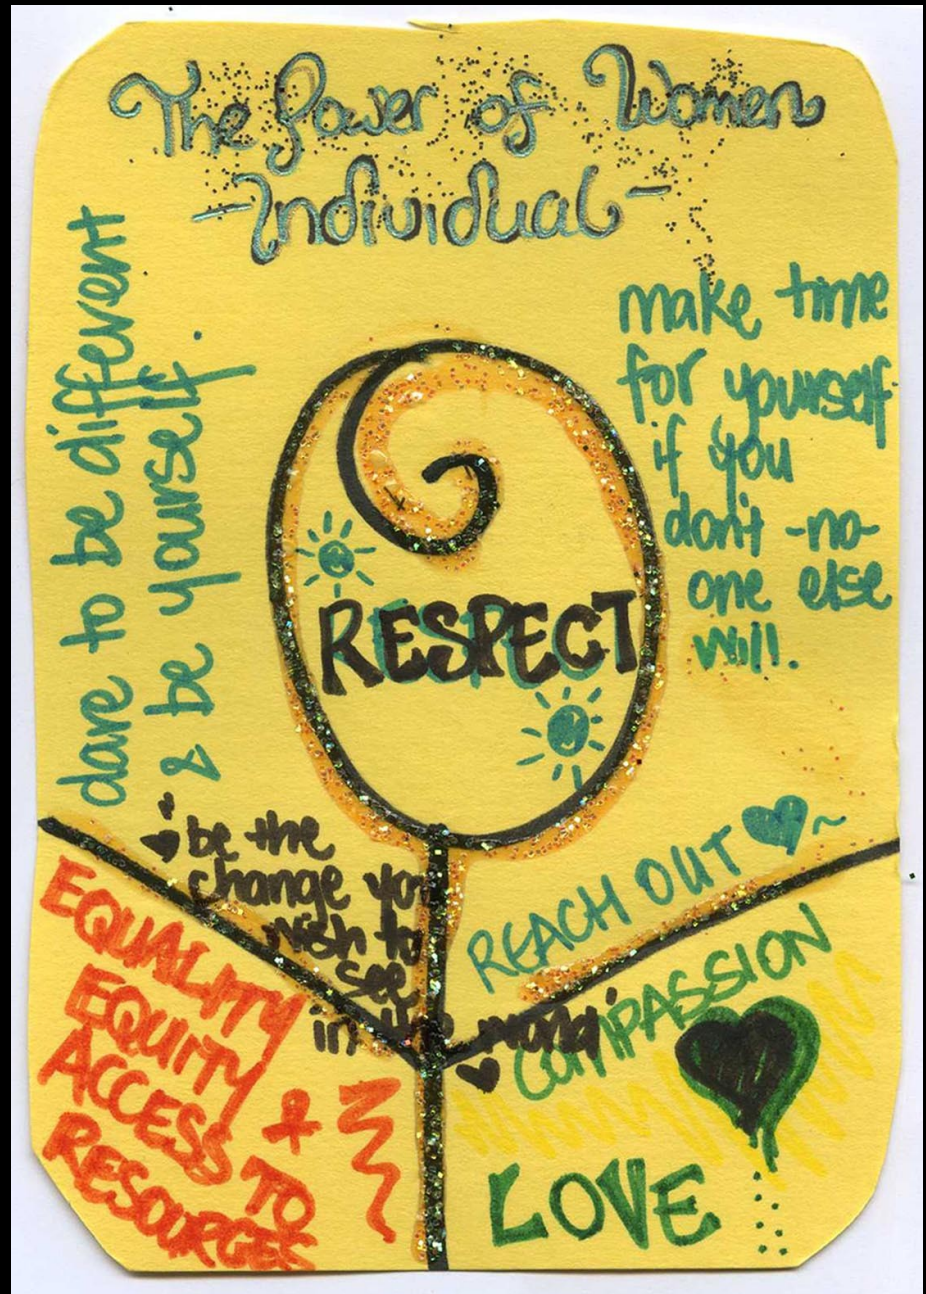 The Power of Women
-Individual-
dare to be different
& be yourself.
make time
for yourself
if you
don't -no-
one else
will.
RESPECT
be the
change you
wish to
see
in the world
REACH OUT
COMPASSION
LOVE
EQUALITY
EQUITY +
ACCESS TO
RESOURCES